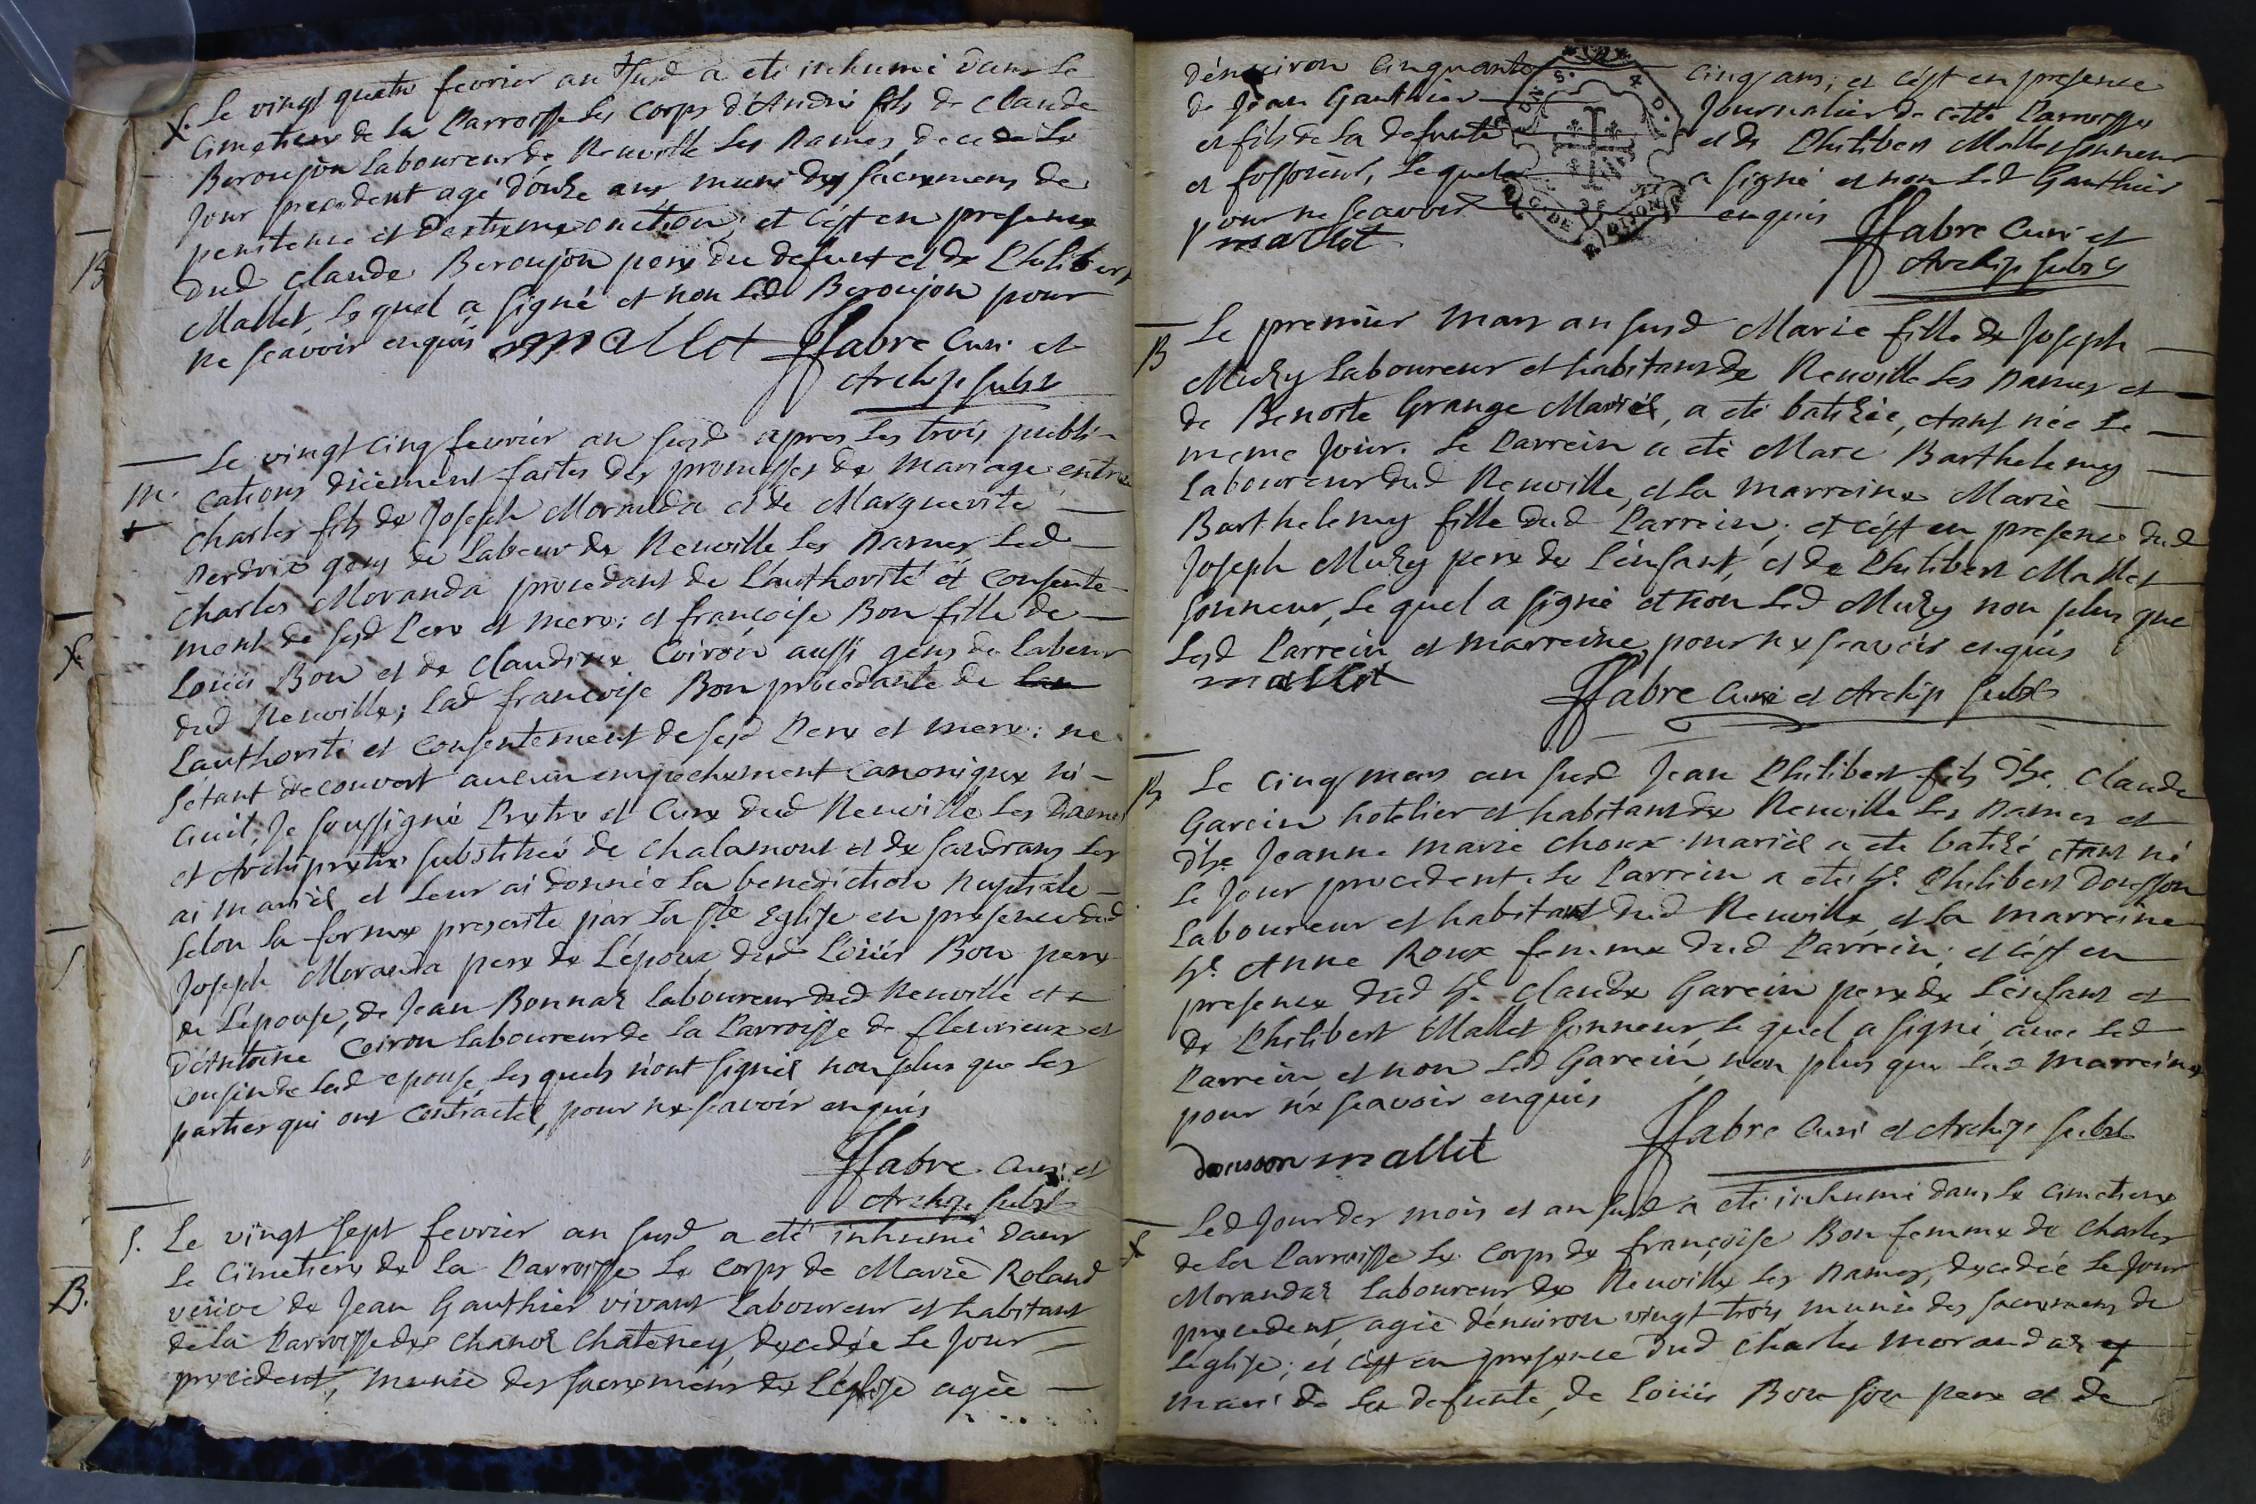 S. Le vingt quatre fevrier an susd a eté inhumé dans le
cimetiere de la Parroisse le corps d'André fils de Claude
Beroujon laboureur de Neuville les Dames, decedé le
jour precedent agé d'onze ans muni des sacremens de
penitence et d'extreme onction; et c'est en presence
dud Claude Beroujon pere du defunt et de Philibert
Mallet, lequel a signé et non led Beroujon pour
ne scavoir enquis mallet Ffabre Curé et
Archip. subst

m. Le vingt cinq fevrier an susd apres les trois publi-
cations düement faites des promesses de mariage entre
Charles fils de Joseph Moranda et de Marguerite
Perdrix gens de labeur de Neuville les Dames, led
Charles Moranda procedant de l'authorité et consente-
ment de sesd Pere et mere: et françoise Bon fille de
Loüis Bon et de Claudine Coiron aussi gens de labeur
dud Neuville; lad francoise Bon procedante de
l'authorité et consentement de sesd Pere et mere: ne
s'étant decouvert aucun empechement canonique ni
civil, Je soussigné Pretre et Curé dud Neuville les Dames
et Archipretre substitué de Chalamont et de Sandrans les
ai mariés et leur ai donnée la benediction nuptiale
selon la forme prescrite par la Ste Eglise en presence dud
Joseph Moranda pere de l'époux dud Loüis Bon pere
de l'epouse, de Jean Bonnaz laboureur dud Neuville et
d'Antoine Coiron laboureur de la Parroisse de fleurieux et
cousin de lad epouse, lesquels n'ont signés non plus que les
parties qui ont contracté, pour ne scavoir enquis
Ffabre Curé et
Archip. subst

S. Le vingt sept fevrier an susd a eté inhumé dans
le cimetiere de la Parroisse le corps de Marie Roland
veüve de Jean Gauthier vivant laboureur et habitant
de la Parroisse de Chanoz Chateney, decedée le jour
precedent, munie des sacremens de l'eglise agée
B.
d'environ cinquante cinq ans; et c'est en presence
de Jean Gauthier Journalier de cette Parroisse
et fils de la defunte et de Philibert Mallet sonneur
et fossoieur, lequel a signé et non led Gauthier
pour ne scavoir enquis
mallet Ffabre Curé et
Archip subst

B Le premier mars an susd Marie fille de Joseph
Muzy laboureur et habitant de Neuville les Dames et
de Benoite Grange Mariés, a eté batizée, etant née le
meme jour. Le Parrein a eté Marc Barthelemy
laboureur dud Neuville, et la marreine Marie
Barthelemy fille dud Parrein; et c'est en presence dud
Joseph Muzy pere de l'enfant, et de Philibert Mallet
sonneur, lequel a signé et non led Muzy non plus que
lesd Parrein et marreine, pour ne scavoir enquis
mallet
Ffabre Curé et Archip subst

B Le cinq mars an susd Jean Philibert fils d'hte Claude
Garein hotelier et habitant de Neuville les Dames et
d'hte Jeanne marie Choux mariés a eté batizé etant né
le jour precedent. Le Parrein a eté ht. Philibert Dousson
laboureur et habitant dud Neuville et la marreine
ht. Anne Roux femme dud Parrein; et c'est en
presence dud ht. Claude Garein pere de l'enfant et
de Philibert Mallet sonneur, lequel a signé avec led
Parrein et non led Garein, non plus que lad marreine
pour ne scavoir enquis
Ffabre Curé et Archip. subst
dousson mallet

S Led jour des mois et an susd a eté inhumé dans le cimetiere
de la Parroisse le corps de françoise Bon femme de Charles
Morandaz laboureur de Neuville les Dames, decedée le jour
precedent, agée d'environ vingt trois, munie des sacremens de
l'eglise; et c'est en presence dud Charles Morandaz et
mari de la defunte, de Loüis Bon son pere et de